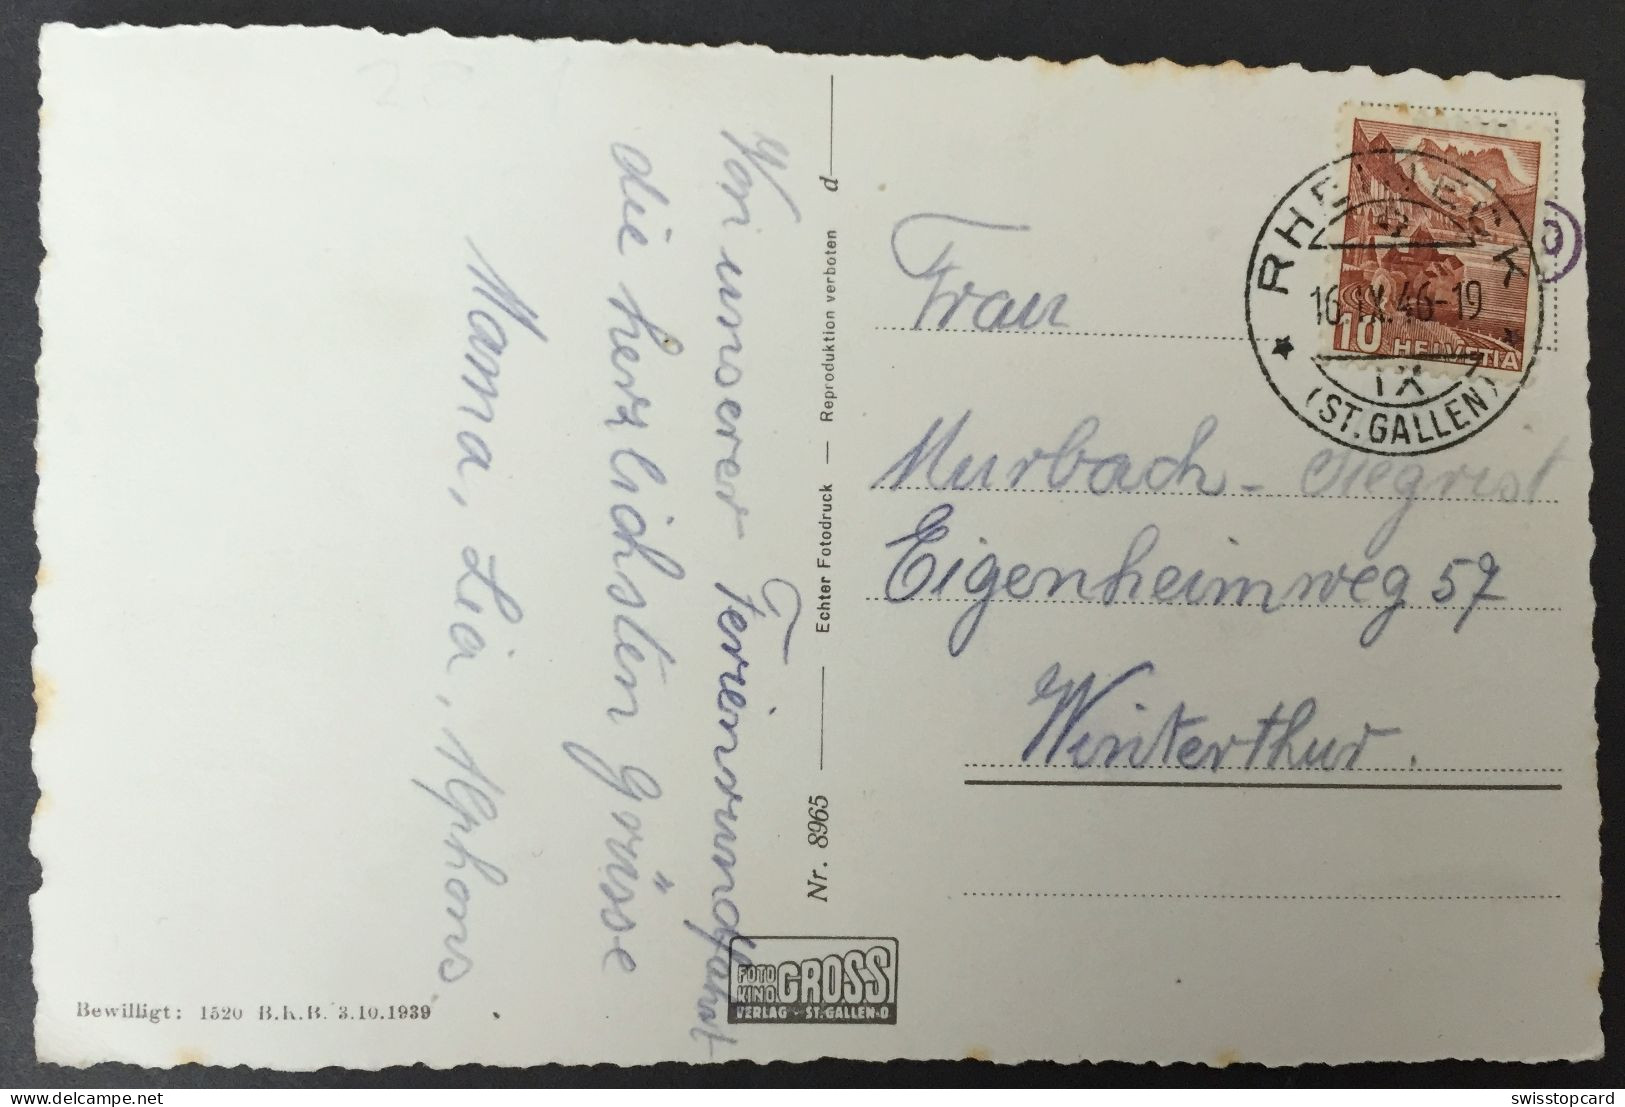 Von unserer Ferienrundfahrt
die herzlichsten Grüsse
Mama, Lia, Alphons
Bewilligt: 1520 B.K.B. 3.10.1939
Nr. 8965 Echter Fotodruck — Reproduktion verboten d
FOTO KINO GROSS
VERLAG ST.GALLEN-O
RHEINECK
16.IX.46-19
IX
(ST.GALLEN)
10 HELVETIA
Frau
Murbach-Siegrist
Eigenheimweg 57
Winterthur.
swisstopcard